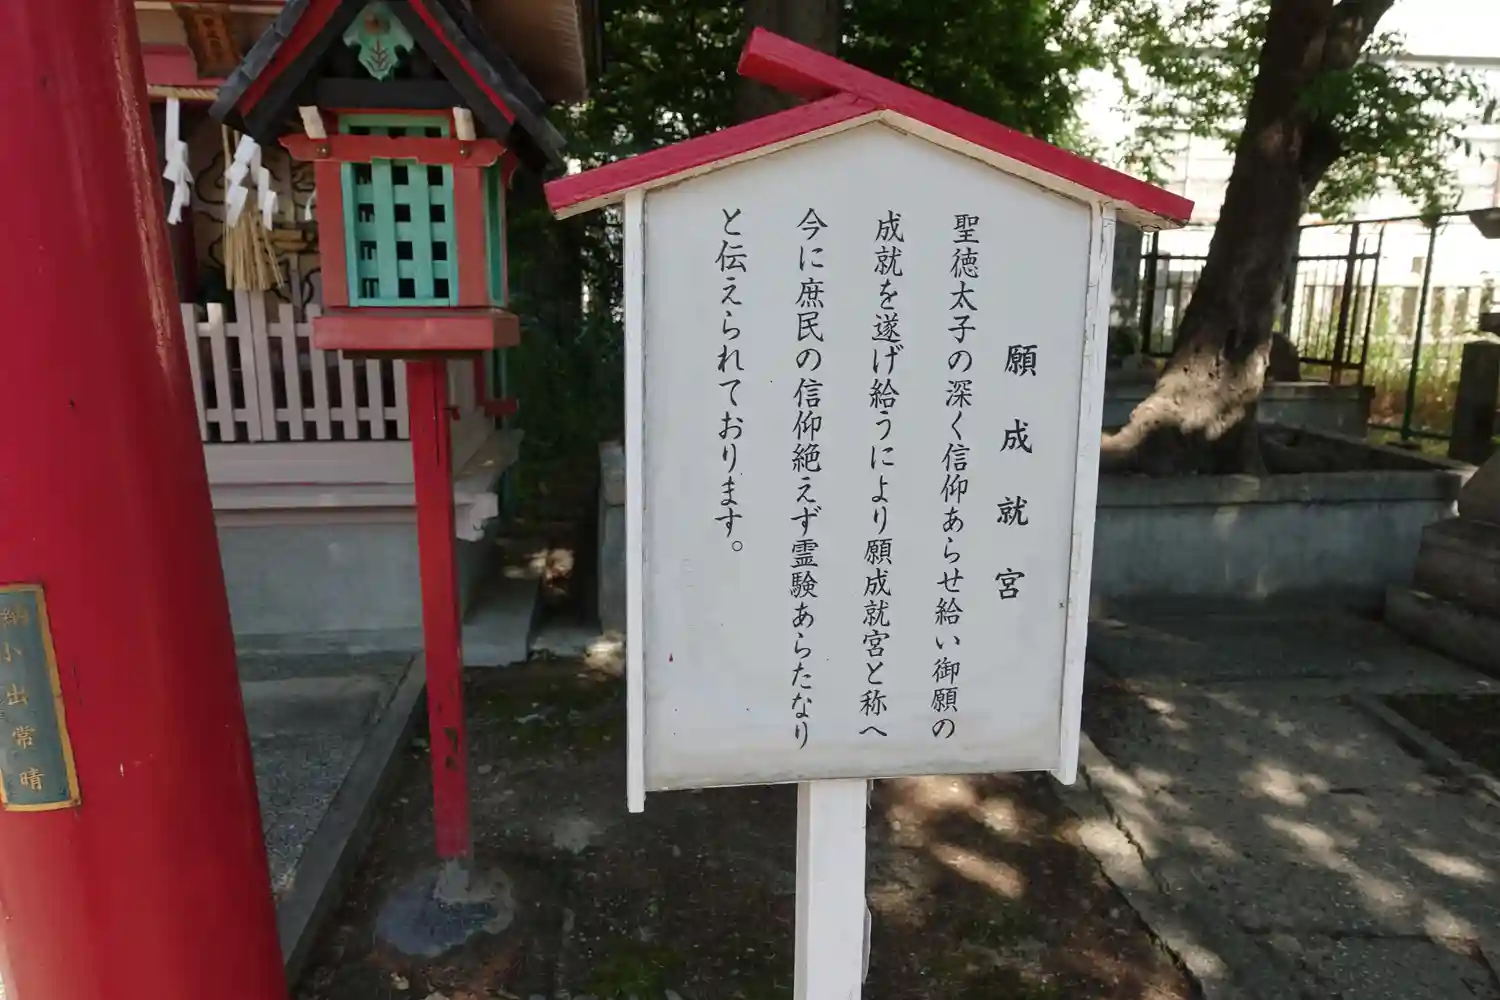 願成就宮
聖徳太子の深く信仰あらせ給い御願の
成就を遂げ給うにより願成就宮と称へ
今に庶民の信仰絶えず霊験あらたなり
と伝えられております。
納小出常晴